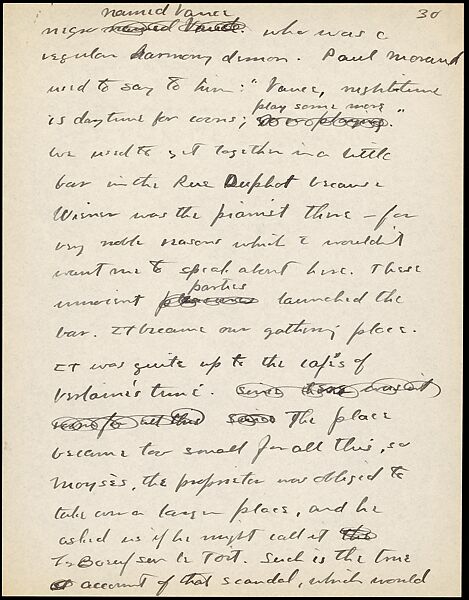 30
named Vance
negro named Vance. who was a
regular harmony demon. Paul Morand
used to say to him: "Vance, nighttime
play some more
is daytime for coons; playing."
We used to get together in a little
bar in the Rue Duphot because
Wiener was the pianist there – for
very noble reasons which he wouldn't
want me to speak about here. These
parties
innocent launched the
bar. It became our gathering place.
It was quite up to the cafés of
Verlaine's time.
The place
became too small for all this, so
Moysès, the proprietor was obliged to
take on a larger place, and he
asked us if he might call it the
Le Boeuf sur le Toit. Such is the true
account of that scandal, which would